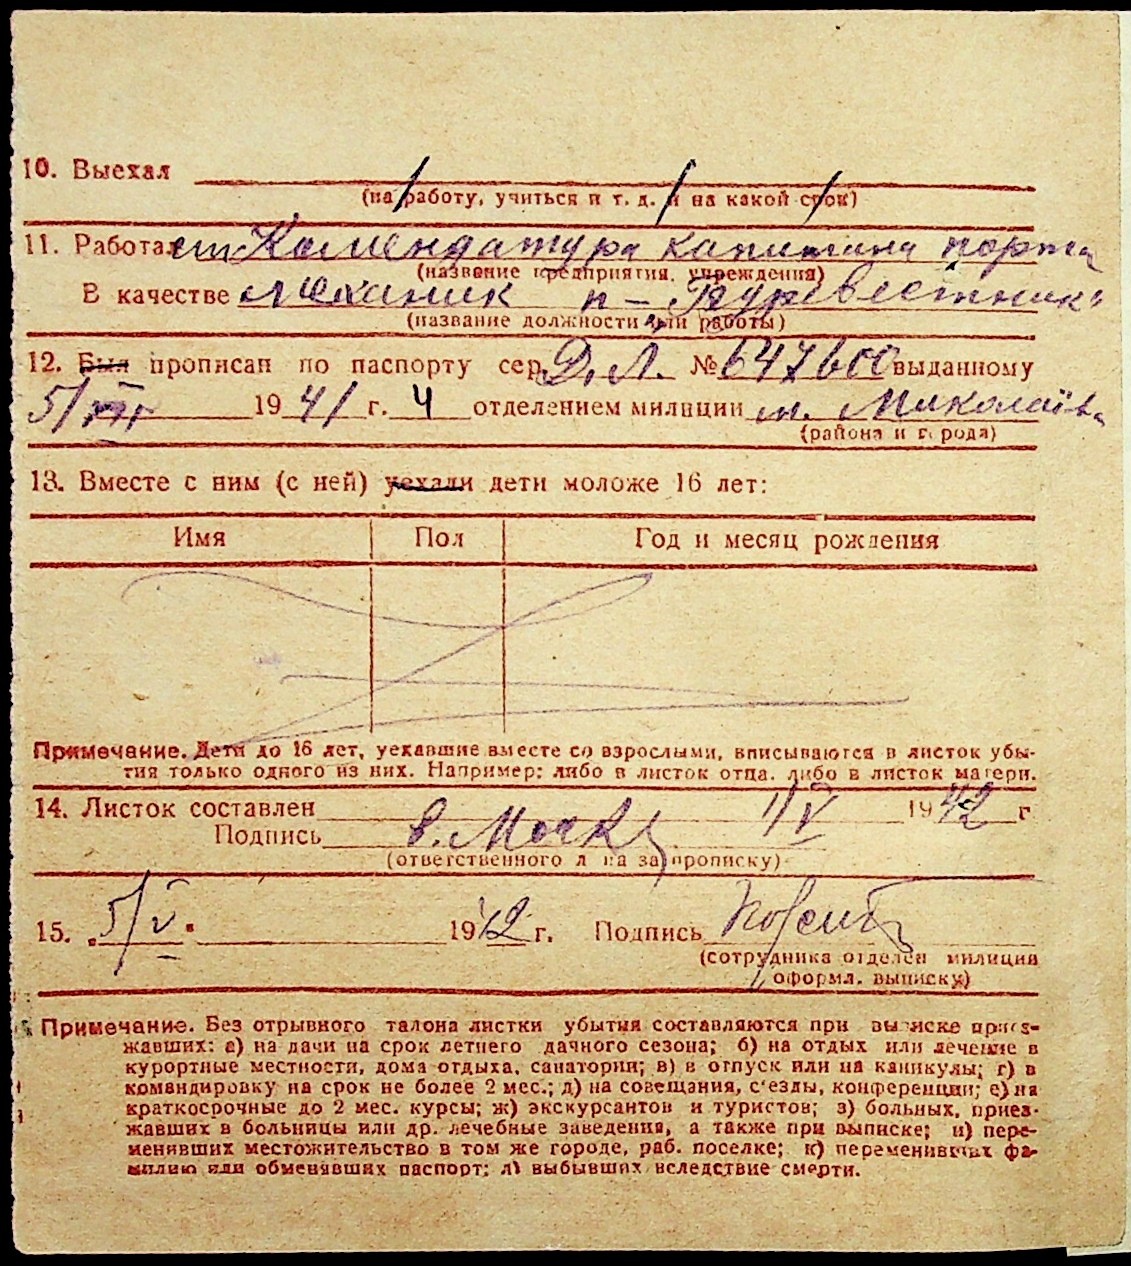 10. Выехал
(на работу, учиться и т. д. и на какой срок)
11. Работал Комендатура капитана порта
(название предприятия, учреждения)
В качестве механик п- Буревестник"
(название должности или работы)
12. Был прописан по паспорту сер. Д.Л. № 647600 выданному
5/VII 1941 г. 4 отделением милиции гор. Миколаїв
(района и города)
13. Вместе с ним (с ней) уехали дети моложе 16 лет:
Имя Пол Год и месяц рождения
Примечание. Дети до 16 лет, уехавшие вместе со взрослыми, вписываются в листок убы-
тия только одного из них. Например: либо в листок отца, либо в листок матери.
14. Листок составлен 1/V 1942 г
Подпись
(ответственного л на за прописку)
15. „5/V" 1942 г. Подпись
(сотрудника отделен милиции
оформл. выписку)
Примечание. Без отрывного талона листки убытия составляются при выписке приез-
жавших: а) на дачи на срок летнего дачного сезона; б) на отдых или лечение в
курортные местности, дома отдыха, санатории; в) в отпуск или на каникулы; г) в
командировку на срок не более 2 мес.; д) на совещания, с'езды, конференции; е) на
краткосрочные до 2 мес. курсы; ж) экскурсантов и туристов; з) больных, приез-
жавших в больницы или др. лечебные заведения, а также при выписке; и) пере-
менивших местожительство в том же городе, раб. поселке; к) переменивших фа-
милию или обменявших паспорт; л) выбывших вследствие смерти.